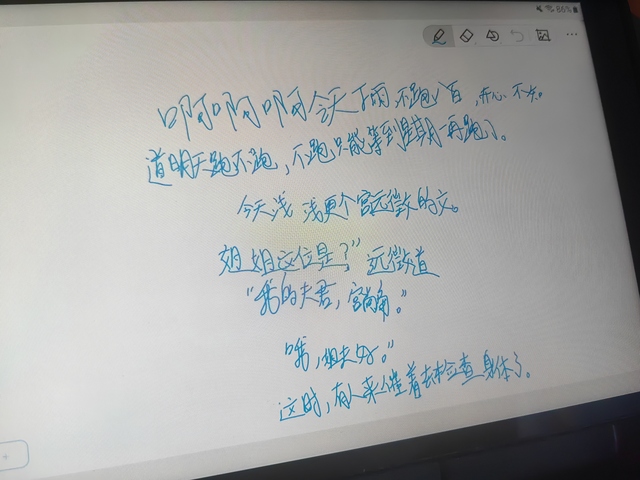 86%
啊啊啊今天下雨不跑八百,开心 不知
道明天跑不跑,不跑只能等到星期一再跑了。
今天浅 浅更个宫远徵的文。
姐姐这位是?”远徵道
“我的夫君,宫尚角。”
哦,姐夫好。”
这时,有人来催着去检查身体了。